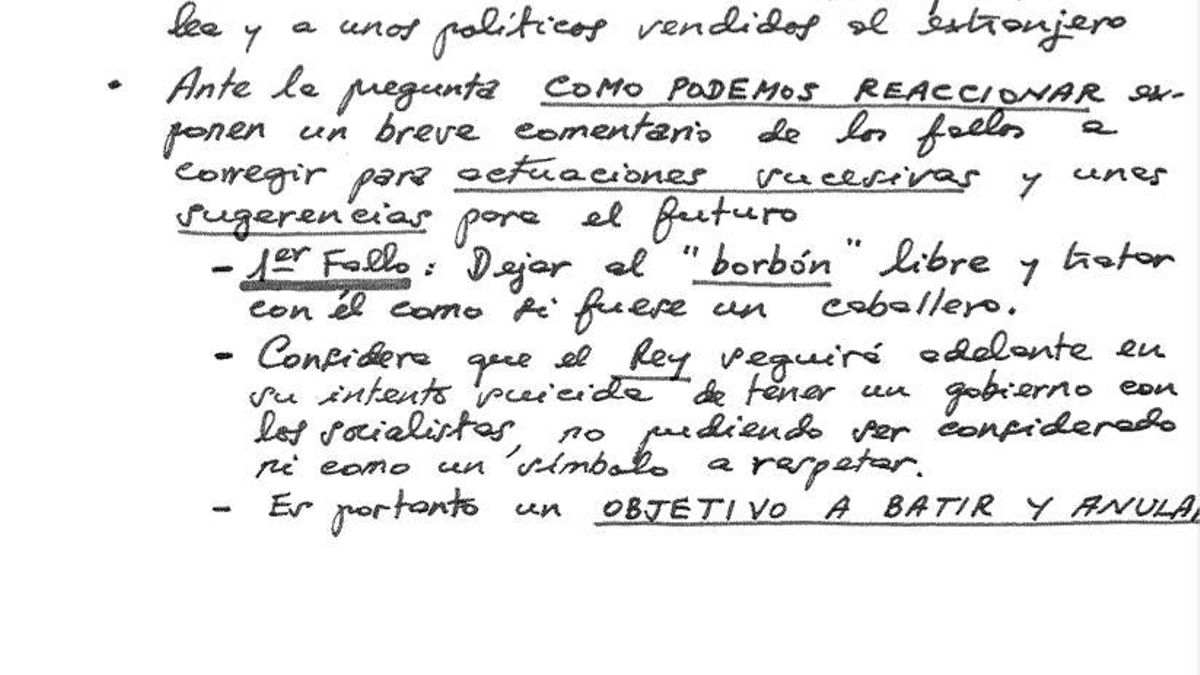 lea y a unos políticos vendidos al extranjero
• Ante la pregunta COMO PODEMOS REACCIONAR ex-
ponen un breve comentario de los fallos a
corregir para actuaciones sucesivas y unas
sugerencias para el futuro
- 1er Fallo: Dejar al "borbón" libre y tratar
con él como si fuese un caballero.
- Considera que el Rey seguirá adelante en
su intento suicida de tener un gobierno con
los socialistas, no pudiendo ser considerado
ni como un símbolo a respetar.
- Es portanto un OBJETIVO A BATIR Y ANULAR